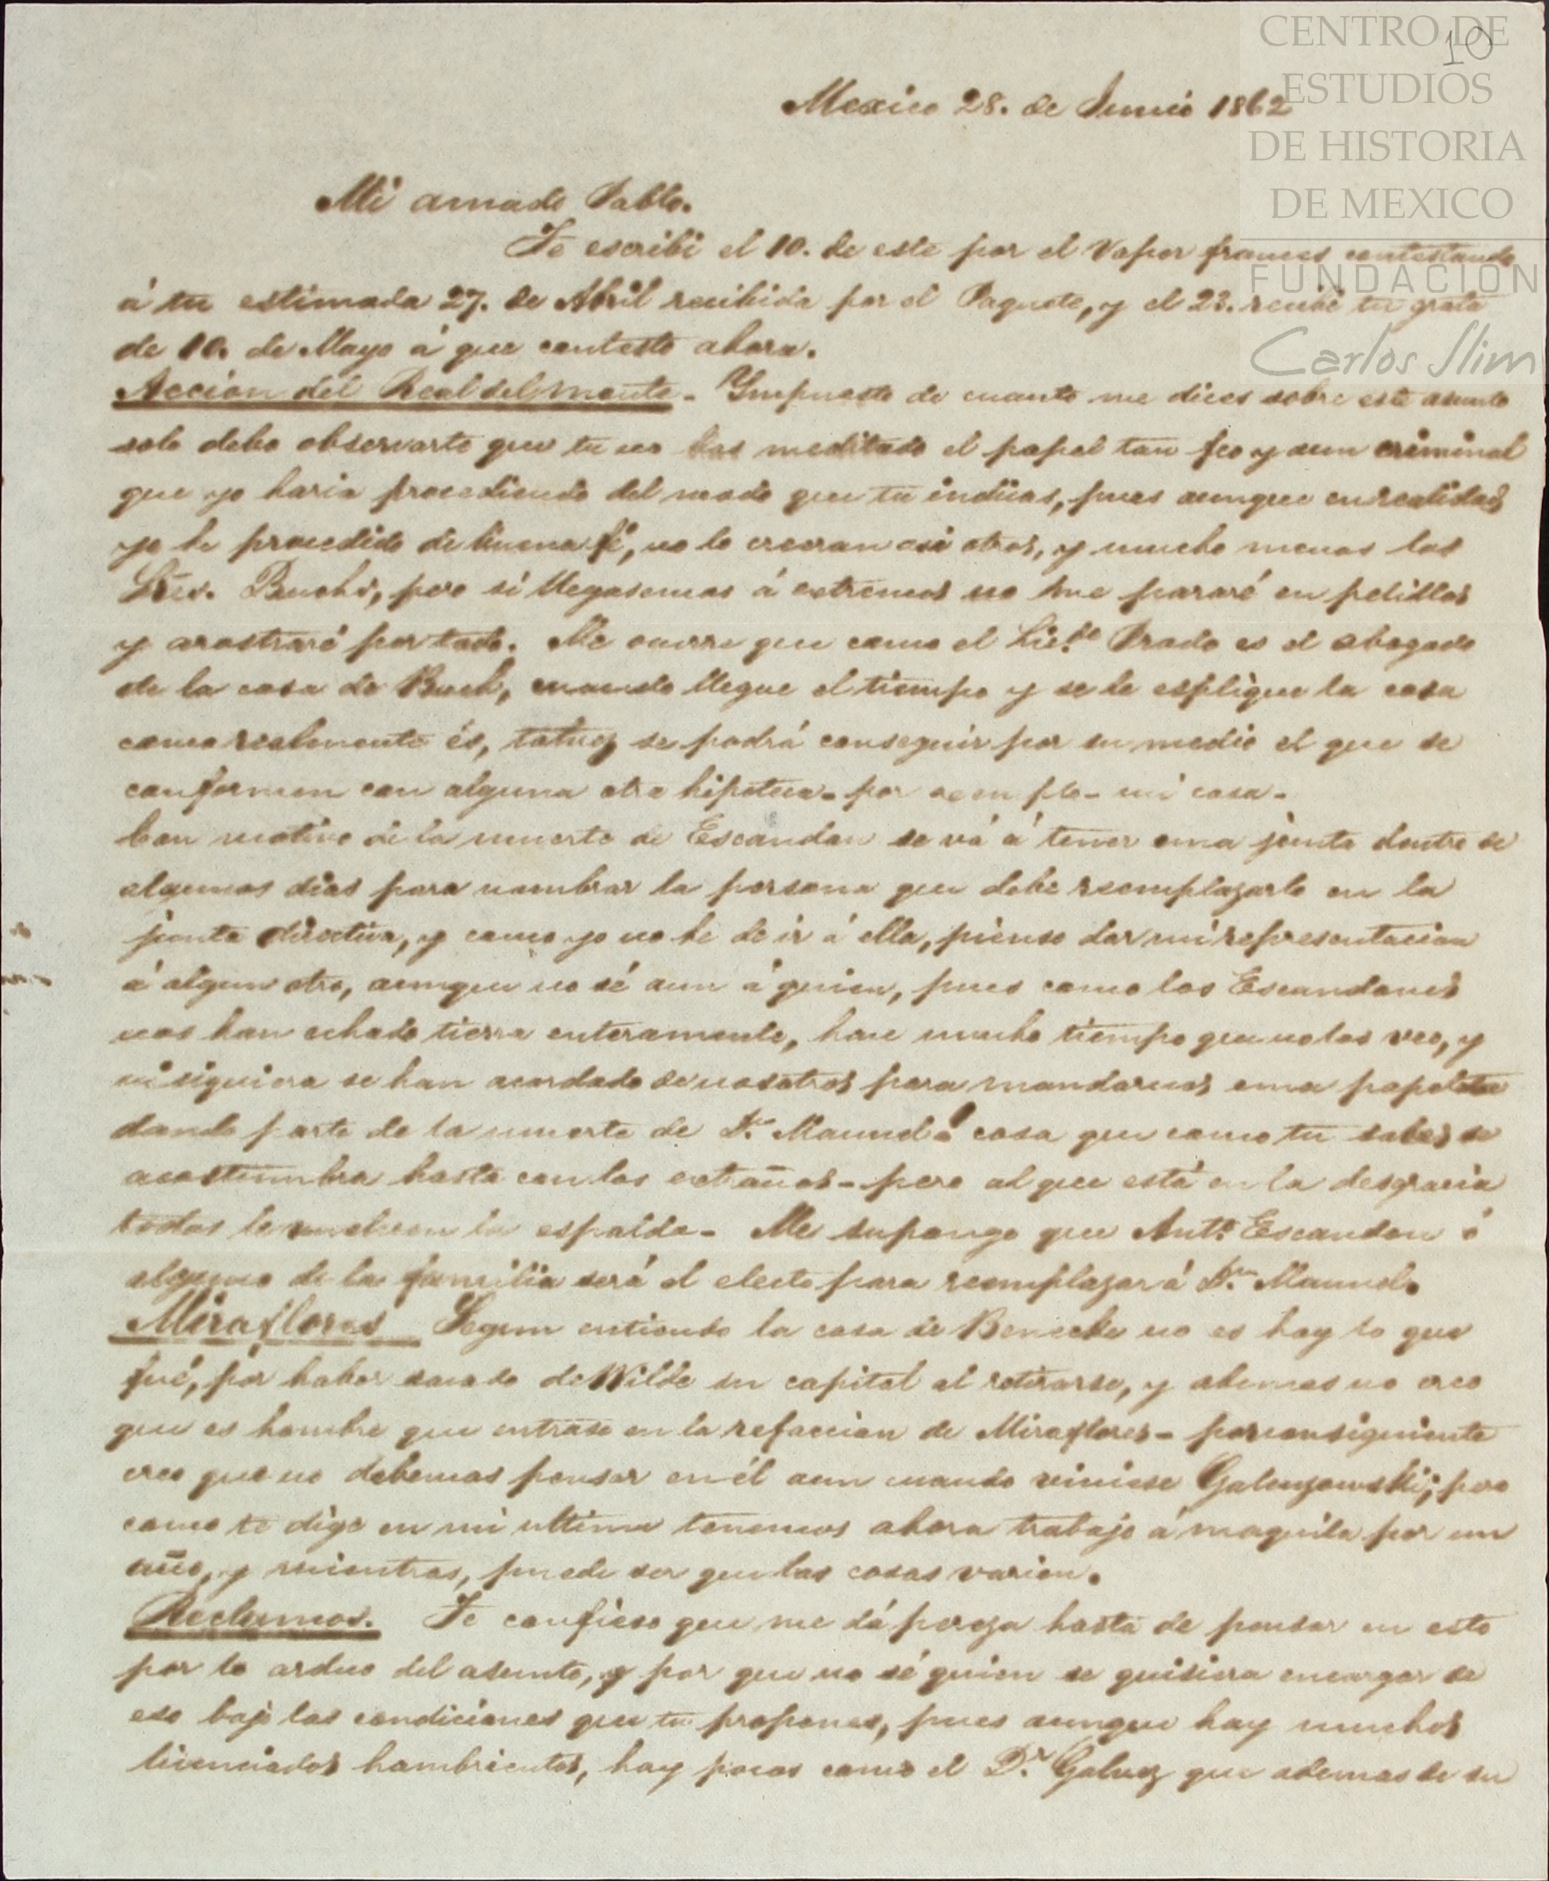 CENTRO DE
ESTUDIOS
DE HISTORIA
DE MEXICO
FUNDACIÓN
Carlos Slim
10
Mexico 28. de Junio 1862
Mi amado Pablo.
Te escribi el 10. de este por el Vapor frances contestando
á tu estimada 27. de Abril recibida por el Paquete, y el 23. recibí tu grata
de 10. de Mayo á que contesto ahora.
Accion del Real del monte - Ympuesto de cuanto me dices sobre este asunto
solo debo observarte que tu no has meditado el papel tan feo y aun criminal
que yo haria procediendo del modo que tu indicas, pues aunque en realidad
yo he procedido de buena fé, no lo creeran asi otros, y mucho menos los
Sres. Buchs, pero si llegasemos á extremos no me pararé en pelillos
y arostraré por todo. Me ocurre que como el Licdo. Prado es el abogado
de la casa de Buch, cuando llegue el tiempo y se le esplique la cosa
como realmente és, talvez se podrá conseguir por su medio el que se
conformen con alguna otra hipoteca - por ejemplo - mi casa -
Con motivo de la muerte de Escandon se vá á tener una junta dentro de
algunos dias para nombrar la persona que debe reemplazarlo en la
junta directiva, y como yo no he de ir á ella, pienso dar mi representacion
á algun otro, aunque no sé aun á quien, pues como los Escandones
nos han echado tierra enteramente, hace mucho tiempo que no los veo, y
ni siquiera se han acordado de nosotros para mandarnos una papeleta
dando parte de la muerte de Dn. Manuel! cosa que como tu sabes se
acostumbra hasta con los extraños - pero al que está en la desgracia
todos le vuelven la espalda - Me supongo que Anto. Escandon ó
alguno de la familia será el electo para reemplazar á Dn. Manuel.
Miraflores Segun entiendo la casa de Benecke no es hoy lo que
fué, por haber sacado de Wilde su capital al retirarse, y ademas no creo
que es hombre que entrase en la refaccion de Miraflores - por consiguiente
creo que no debemos pensar en él aun cuando viniese Galenzowski; pero
como te dige en mi ultima tenemos ahora trabajo á maquila por un
año, y mientras, puede ser que las cosas varien.
Reclamos. Te confieso que me dá pereza hasta de pensar en esto
por lo arduo del asunto, y por que no sé quien se quisiera encargar de
eso bajo las condiciones que tu propones, pues aunque hay muchos
licenciados hambrientos, hay pocos como el Dr. Galvez que ademas de su